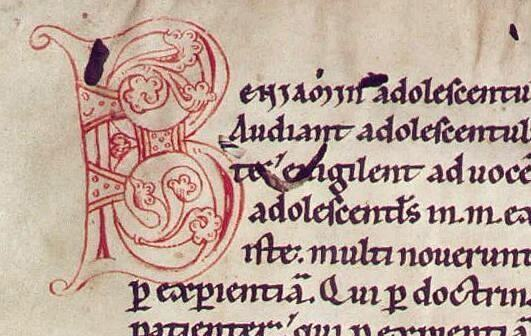 Beniamin adolescentu
Audiant adolescentul
te. euigilent ad uoce
adolescentl̄s in.m.ex
iste. multi nouerunt
ꝑ exꝑientiā. Qui ꝑ doctrin
patienter. qui ꝑ experientiā